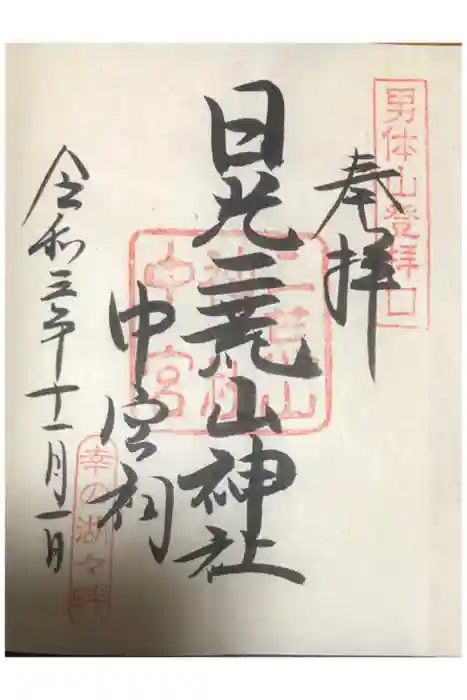 男体山登拝口
奉拝
日光二荒山神社
二荒山
神社
中宮
中宮祠
幸の湖々畔
令和三年十一月一日